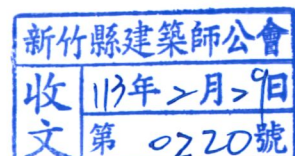 新竹縣建築師公會
收文
113年2月29日
第0220號